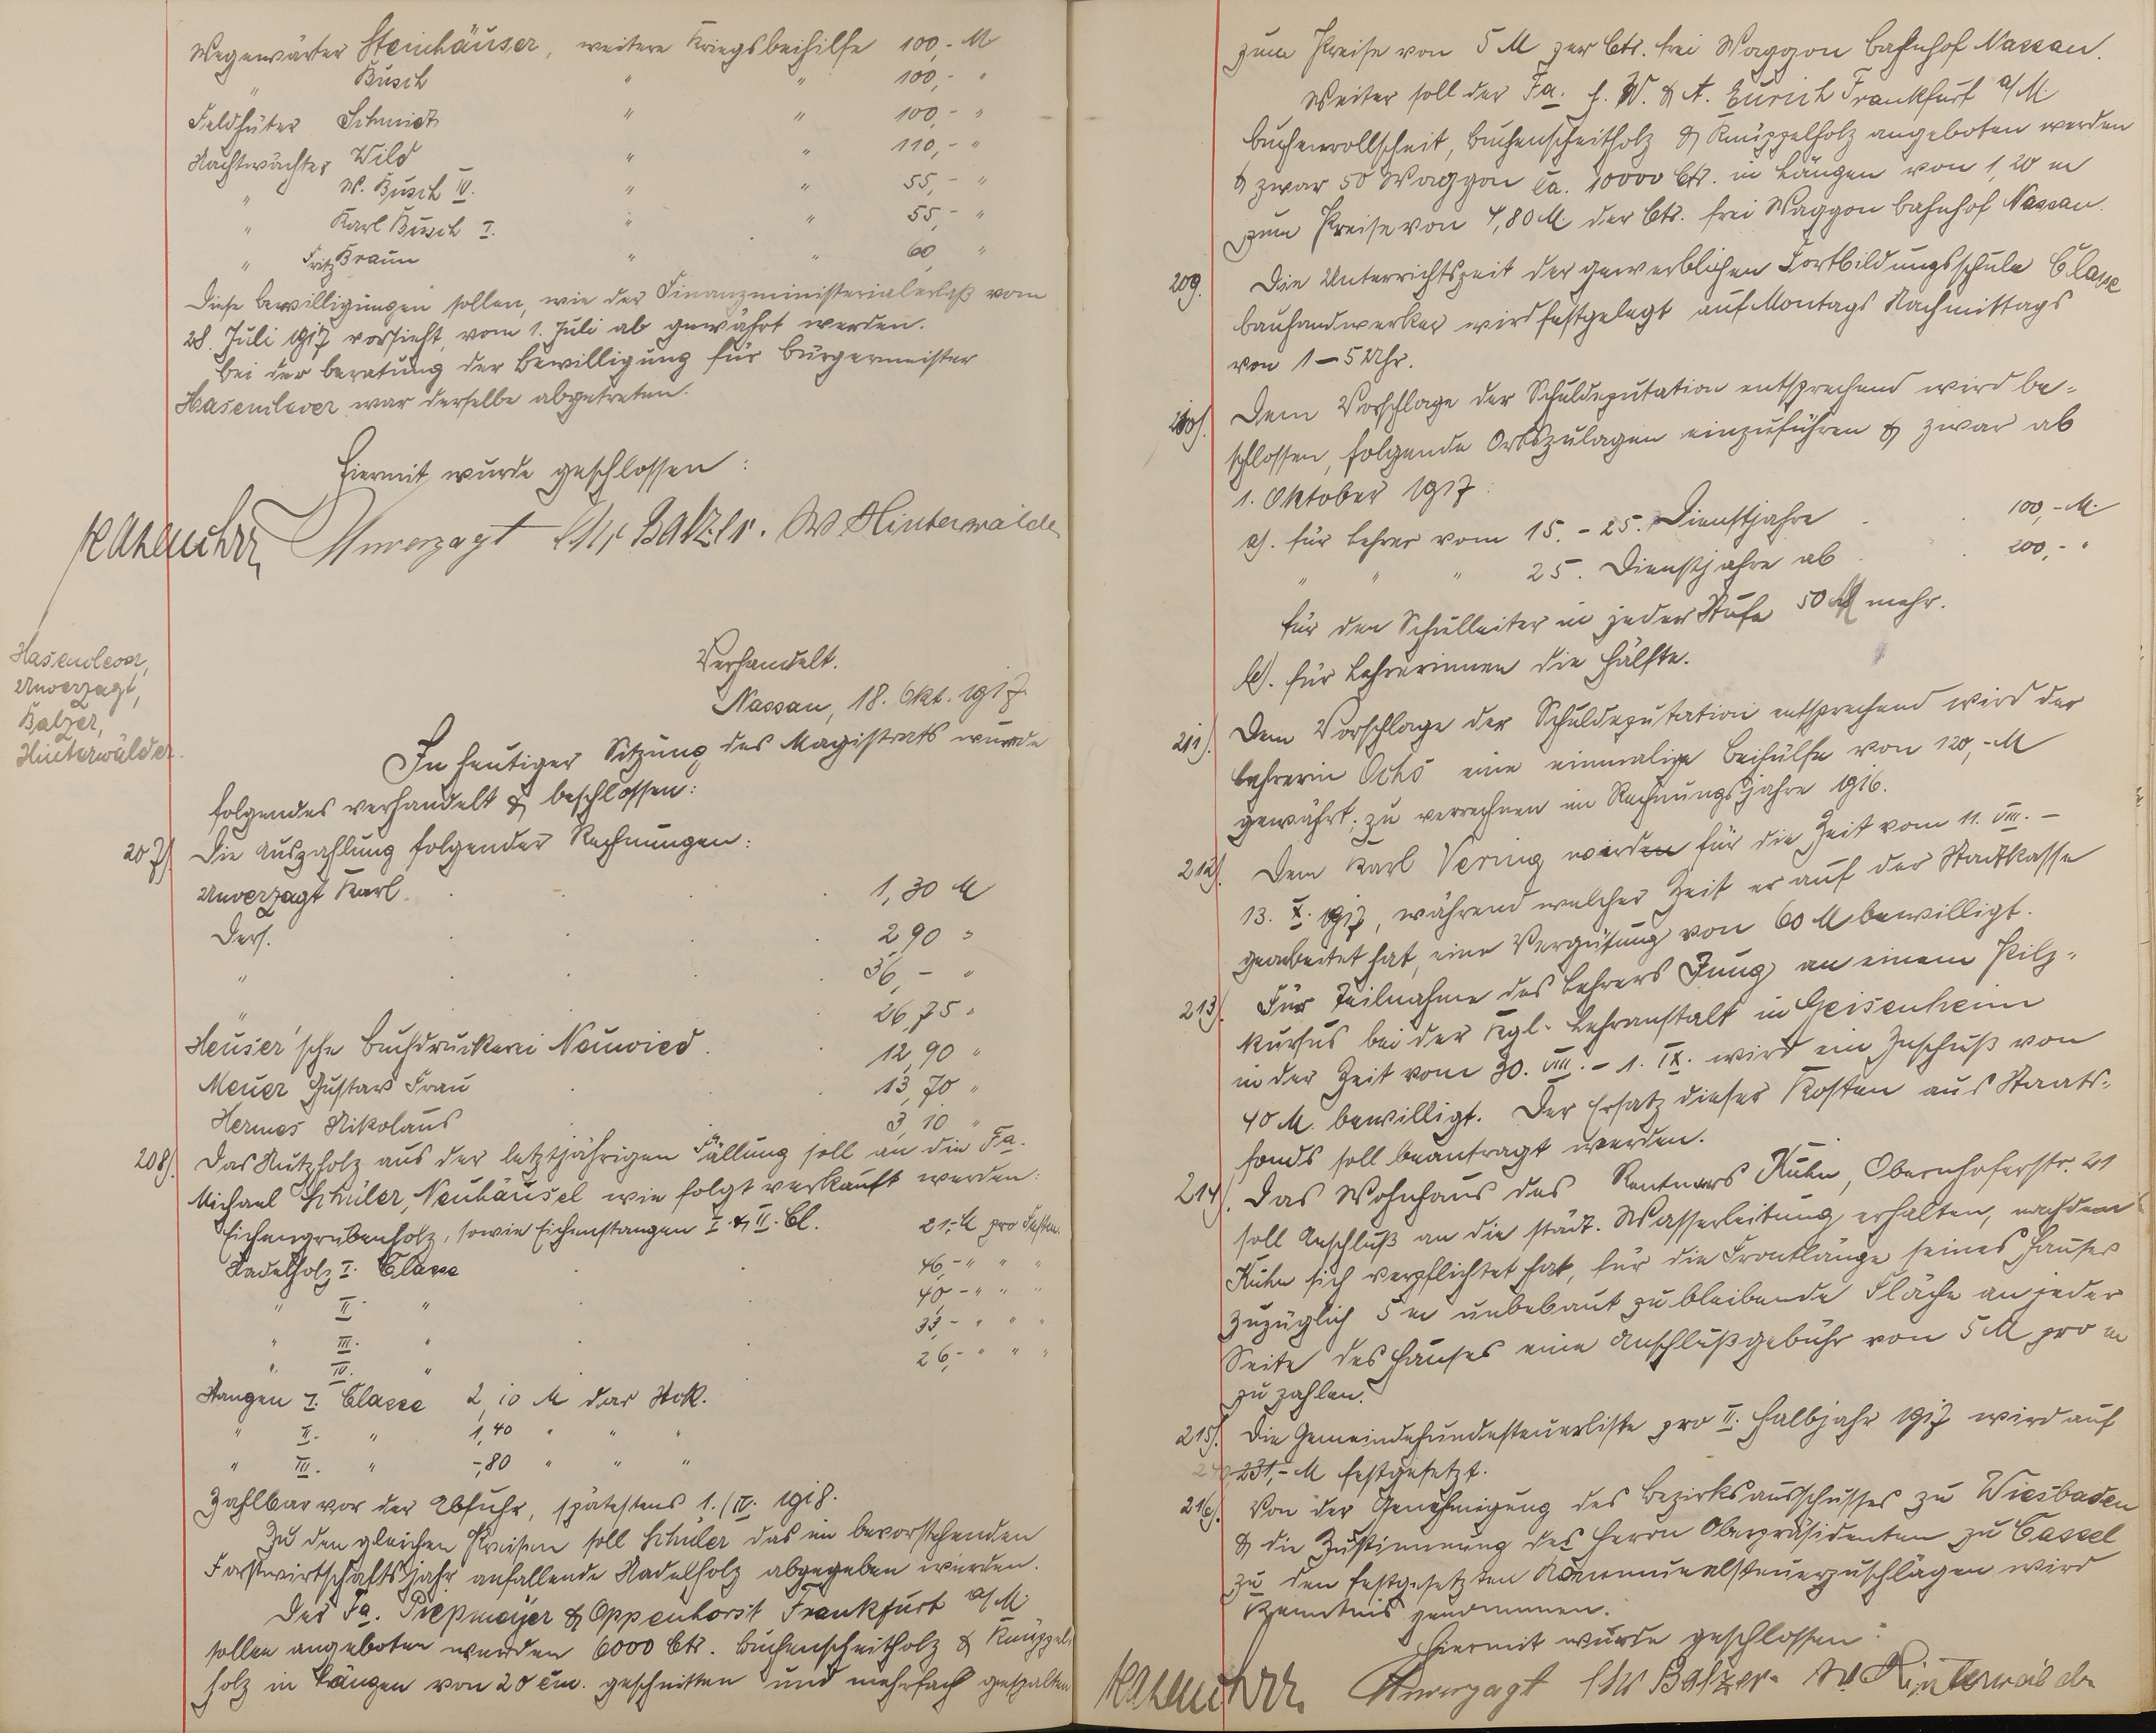 Wegewärter Steinhäuser, weitere Kriegsbeihilfe 100,- M
" Busch " " 100,- "
Feldhüter Schmidt " " 100,- "
Nachtwächter Wild " " 110,- "
" W. Busch IV. " " 55,- "
" Karl Busch I. " " 55,- "
" Fritz Braun " " 60 "
Diese Bewilligungen sollen, wie der Finanzministerialerlaß vom
28. Juli 1917 vorsieht, vom 1. Juli ab gewährt werden.
Bei der Beratung der Bewilligung für Bürgermeister
Hasenclever war derselbe abgetreten.
Hiermit wurde geschlossen:
Hasenclever Unverzagt Chr Balzer. W Hinterwälder
Hasenclever,
Unverzagt,
Balzer,
Hinterwälder.
Verhandelt.
Nassau, 18. Okt. 1917.
In heutiger Sitzung des Magistrats wurde
folgendes verhandelt & beschlossen:
207). Die Auszahlung folgender Rechnungen:
Unverzagt Karl. 1,30 M
Ders. 2,90 "
" 36,- "
" 26,75 "
Heuser'sche Buchdruckerei Neuwied. 12,90 "
Meuer Gustav Frau 13,70 "
Hermes Nikolaus 3,10 "
208). Das Nutzholz aus der letztjährigen Fällung soll an die Fa.
Michael Schüler, Neuhäusel wie folgt verkauft werden:
Eichengrubenholz, sowie Eichenstangen I. & II. Cl. 21,- M pro Festm.
Nadelholz I. Classe 46,- " " "
" II. " 40,- " " "
" III. " 33,- " " "
" IV. " 26,- " " "
Stangen I. Classe 2,10 M das Stck.
" II. " 1,40 " " "
" III. " -,80 " " "
Zahlbar vor der Abfuhr, spätestens 1./IV. 1918.
Zu den gleichen Preisen soll Schüler das im bevorstehenden
Forstwirtschaftsjahr anfallende Nadelholz abgegeben werden.
Der Fa. Piepmeyer & Oppenhorst Frankfurt a/M.
sollen angeboten werden 6000 Ctr. Buchenscheitholz & Knüppel-
holz in Längen von 20 cm. geschnitten und mehrfach gespalten
zum Preise von 5 M per Ctr. frei Waggon Bahnhof Nassau.
Weiter soll der Fa. H. W. & A. Eurich Frankfurt a/M.
Buchenrollscheit, Buchenscheitholz & Knüppelholz angeboten werden
& zwar 50 Waggon ca. 10000 Ctr. in Längen von 1,20 m
zum Preise von 4,80 M. der Ctr. frei Waggon Bahnhof Nassau.
209. Die Unterrichtszeit der gewerblichen Fortbildungsschule Classe
Bauhandwerker wird festgelegt auf Montags Nachmittags
von 1-5 Uhr.
210). Dem Vorschlage der Schuldeputation entsprechend wird be-
schlossen, folgende Ortszulagen einzuführen & zwar ab
1. Oktober 1917:
a). für Lehrer vom 15. - 25. Dienstjahre 100,- M.
" " " 25. Dienstjahre ab 200,- "
für den Schulleiter in jeder Stufe 50 M mehr.
b). für Lehrerinnen die Hälfte.
211). Dem Vorschlage der Schuldeputation entsprechend wird der
Lehrerin Ochs eine einmalige Beihülfe von 120,- M
gewährt; zu verrechnen im Rechnungsjahre 1916.
212). Dem Karl Vering werden für die Zeit vom 11. VIII. -
13. X. 1917, während welcher Zeit er auf der Stadtkasse
gearbeitet hat, eine Vergütung von 60 M bewilligt.
213). Für Teilnahme des Lehrers Jung an einem Pilz-
kursus bei der Kgl. Lehranstalt in Geisenheim
in der Zeit vom 30. VIII. - 1. IX. wird ein Zuschuß von
40 M. bewilligt. Der Ersatz dieser Kosten aus Staats-
fonds soll beantragt werden.
214). Das Wohnhaus des Rentners Kuhn, Obernhoferstr. 21
soll Anschluß an die städt. Wasserleitung erhalten, nachdem
Kuhn sich verpflichtet hat, für die Frontlänge seines Hauses
zuzüglich 5 m unbebaut zu bleibende Fläche an jeder
Seite des Hauses eine Anschlußgebühr von 5 M pro m
zu zahlen.
215). Die Gemeindehundesteuerliste pro II. Halbjahr 1917 wird auf
231,- M festgesetzt.
216). Von der Genehmigung des Bezirksausschusses zu Wiesbaden
& die Zustimmung des Herrn Oberpräsidenten zu Cassel
zu den festgesetzten Kommunalsteuerzuschlägen wird
Kenntnis genommen.
Hiermit wurde geschlossen:
Hasenclever Unverzagt Chr Balzer. W. Hinterwälder